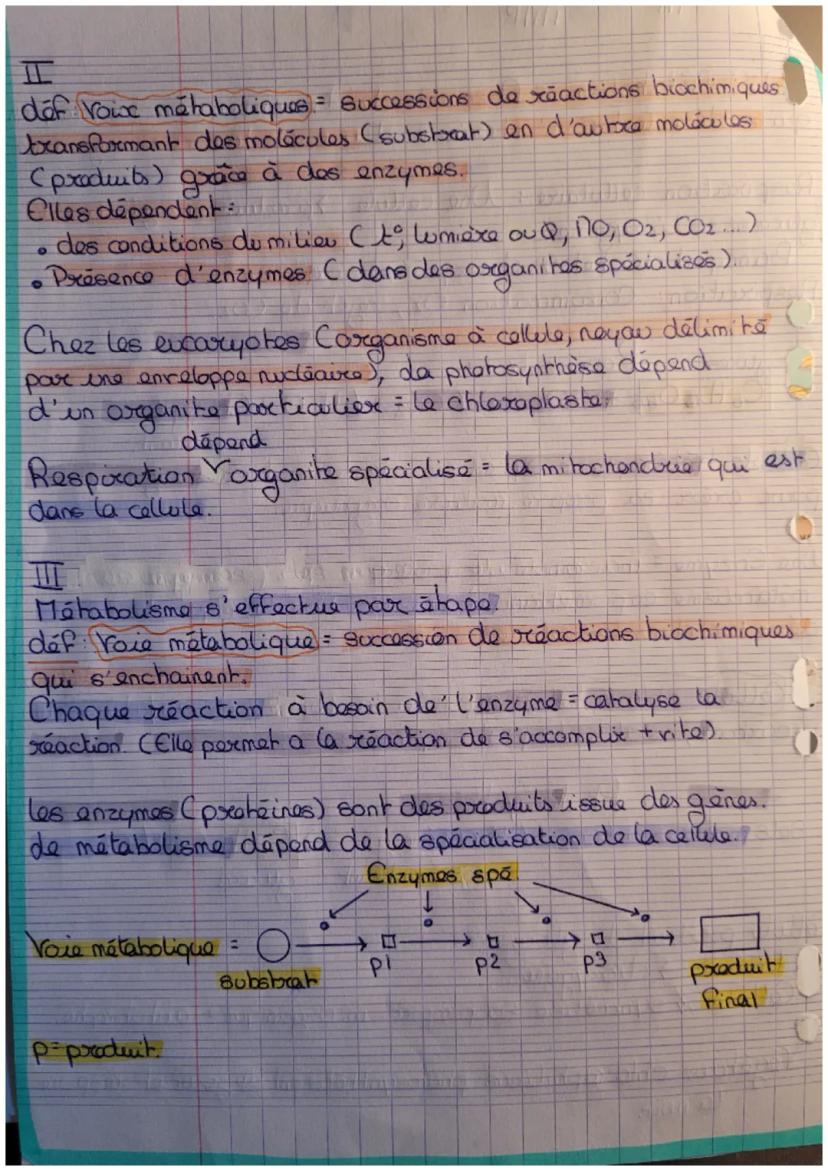 II
déf: Voix métaboliques = successions de réactions biochimiques
transformant des molécules (substrat) en d'autre molécules
(produits) grâce à des enzymes.
Elles dépendent :
• des conditions du milieu (t°, lumière ou Ø, MO, O2, CO2 ...)
• Présence d'enzymes (dans des organites spécialisés).
Chez les eucaryotes (organisme à cellule, noyau délimité
par une enveloppe nucléaire), la photosynthèse dépend
d'un organite particulier = le chloroplaste.
dépend
Respiration V organite spécialisé = la mitochondrie qui est
dans la cellule.
III
Métabolisme s'effectue par étape.
déf: Voie métabolique = succession de réactions biochimiques
qui s'enchainent.
Chaque réaction à besoin de l'enzyme = catalyse la
réaction. (Elle permet a la réaction de s'accomplir + vite)
Les enzymes (protéines) sont des produits issue des gènes.
Le métabolisme dépend de la spécialisation de la cellule.
Enzymes spé
Voie métabolique =
substrat p1 p2 p3 produit
final
p = produit.